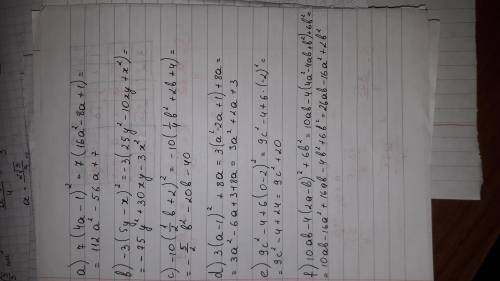 a) 7(4a-1)² = 7(16a²-8a+1) =
= 112a² - 56a + 7
b) -3(5y-x)² = -3(25y²-10xy+x²) =
= -75y² + 30xy - 3x²
c) -10(1/2 b+2)² = -10(1/4 b²+2b+4) =
= -5/2 b² - 20b - 40
d) 3(a-1)² + 8a = 3(a²-2a+1)+8a =
= 3a²-6a+3+8a = 3a²+2a+3
e) 9c²-4+6(0-2)² = 9c²-4+6·(-2)² =
= 9c²-4+24 = 9c²+20
f) 10ab-4(2a-b)²+6b² = 10ab-4(4a²-4ab+b²)+6b² =
= 10ab-16a²+16ab-4b²+6b² = 26ab-16a²+2b²